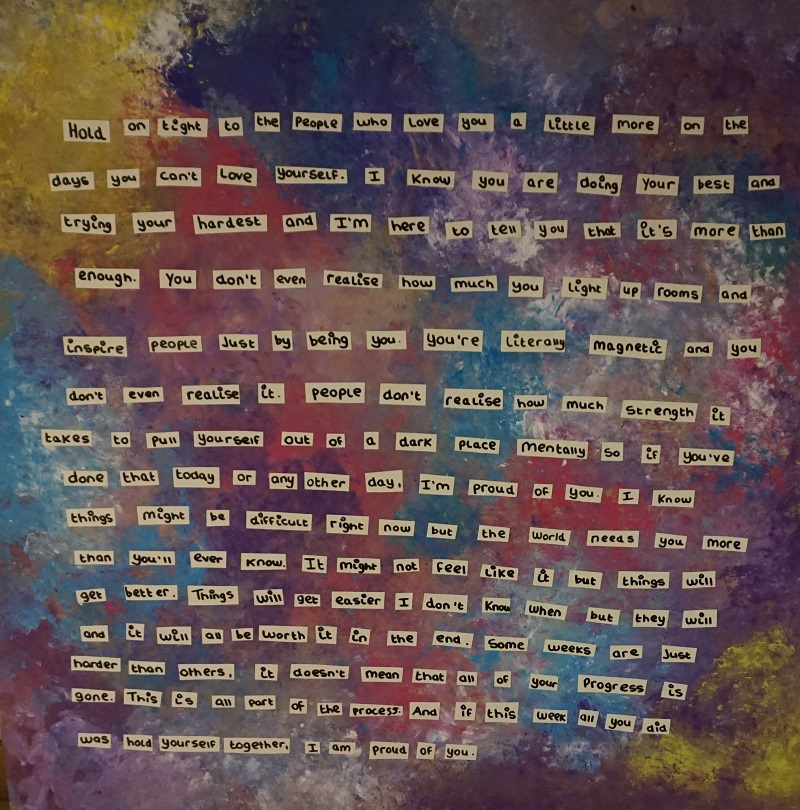 Hold on tight to the People who Love you a Little more on the
days you can't Love yourself. I Know you are doing your best and
trying your hardest and I'm here to tell you that it's more than
enough. You don't even realise how much you Light up rooms and
inspire people Just by being you. you're Literally magnetic and you
don't even realise it. people don't realise how much strength it
takes to pull yourself out of a dark place mentally so if you've
done that today or any other day, I'm proud of you. I Know
things might be difficult right now but the world needs you more
than you'll ever know. It might not feel Like it but things will
get better. Things will get easier I don't Know when but they will
and it will all be worth it in the end. Some weeks are Just
harder than others, it doesn't mean that all of your Progress is
gone. This is all part of the process. And if this week all you did
was hold yourself together, I am proud of you.